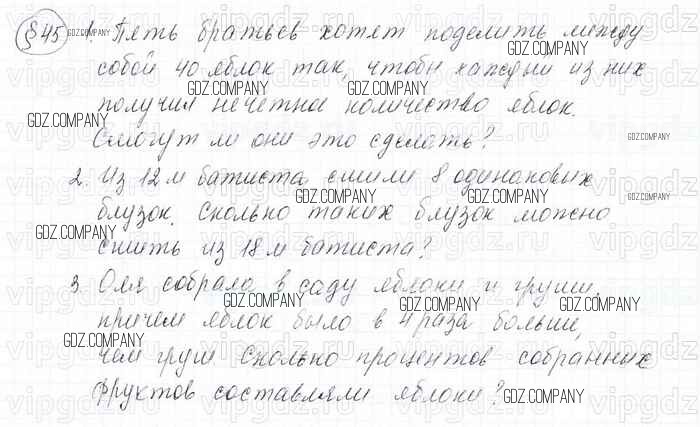 §45 1. Пять братьев хотят поделить между
собой 40 яблок так, чтобы каждый из них
получил нечетное количество яблок.
Смогут ли они это сделать?
2. Из 12 м батиста сшили 8 одинаковых
блузок. Сколько таких блузок можно
сшить из 18 м батиста?
3. Оля собрала в саду яблоки и груши,
причем яблок было в 4 раза больше,
чем груш. Сколько процентов собранных
фруктов составляли яблоки?